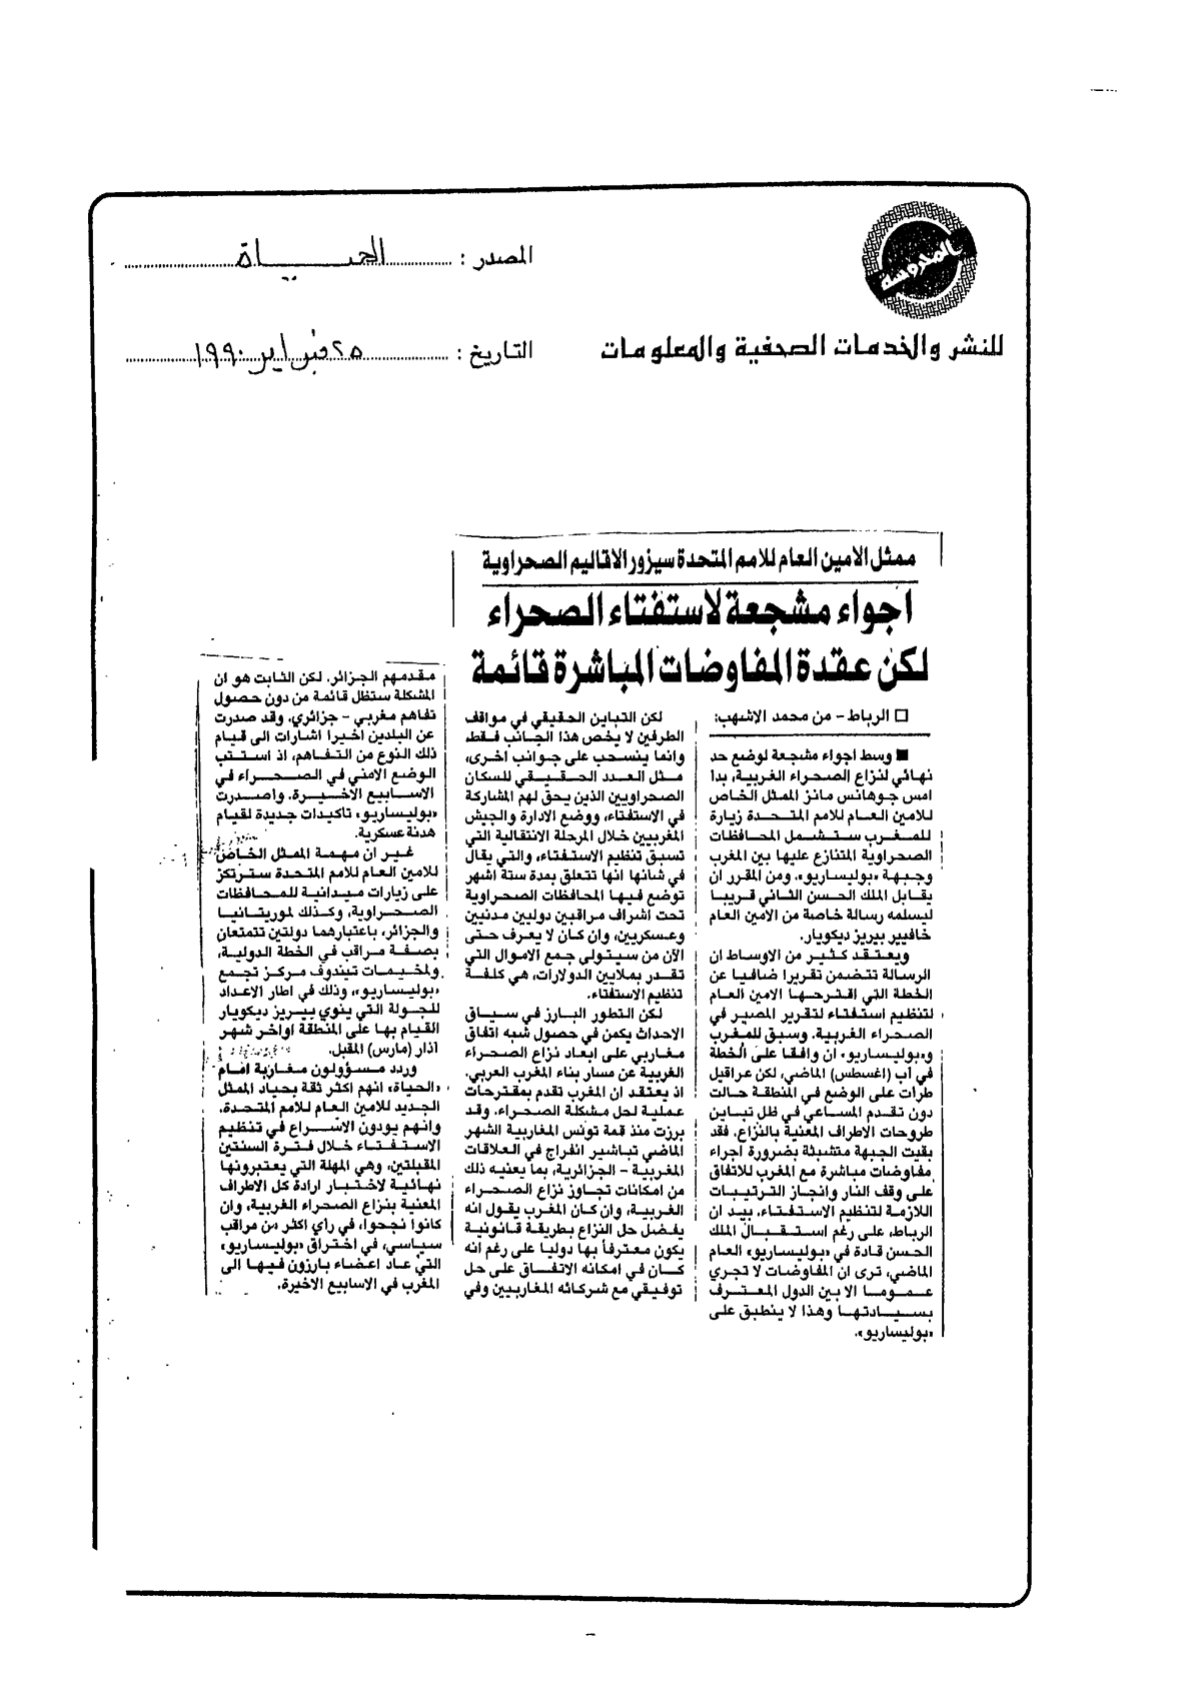 المحروسة
للنشر والخدمات الصحفية والمعلومات
المصدر : الحياة
التاريخ : ٢٥ فبراير ١٩٩٠
ممثل الامين العام للامم المتحدة سيزور الاقاليم الصحراوية
اجواء مشجعة لاستفتاء الصحراء
لكن عقدة المفاوضات المباشرة قائمة
□ الرباط - من محمد الاشهب:
■ وسط اجواء مشجعة لوضع حد
نهائي لنزاع الصحراء الغربية، بدا
امس جوهانس مانز الممثل الخاص
للامين العام للامم المتحدة زيارة
للمغرب ستشمل المحافظات
الصحراوية المتنازع عليها بين المغرب
وجبهة «بوليساريو». ومن المقرر ان
يقابل الملك الحسن الثاني قريبا
ليسلمه رسالة خاصة من الامين العام
خافيير بيريز ديكويار.
ويعتقد كثير من الاوساط ان
الرسالة تتضمن تقريرا ضافيا عن
الخطة التي اقترحها الامين العام
لتنظيم استفتاء لتقرير المصير في
الصحراء الغربية. وسبق للمغرب
و«بوليساريو» ان وافقا على الخطة
في آب (اغسطس) الماضي، لكن عراقيل
طرات على الوضع في المنطقة حالت
دون تقدم المساعي في ظل تباين
طروحات الاطراف المعنية بالنزاع. فقد
بقيت الجبهة متشبثة بضرورة اجراء
مفاوضات مباشرة مع المغرب للاتفاق
على وقف النار وانجاز الترتيبات
اللازمة لتنظيم الاستفتاء. بيد ان
الرباط، على رغم استقبال الملك
الحسن قادة في «بوليساريو» العام
الماضي، ترى ان المفاوضات لا تجري
عموما الا بين الدول المعترف
بسيادتها وهذا لا ينطبق على
«بوليساريو».
لكن التباين الحقيقي في مواقف
الطرفين لا يخص هذا الجانب فقط،
وانما ينسحب على جوانب اخرى،
مثل العدد الحقيقي للسكان
الصحراويين الذين يحق لهم المشاركة
في الاستفتاء، ووضع الادارة والجيش
المغربيين خلال المرحلة الانتقالية التي
تسبق تنظيم الاستفتاء، والتي يقال
في شانها انها تتعلق بمدة ستة اشهر
توضع فيها المحافظات الصحراوية
تحت اشراف مراقبين دوليين مدنيين
وعسكريين، وان كان لا يعرف حتى
الآن من سيتولى جمع الاموال التي
تقدر بملايين الدولارات، هي كلفة
تنظيم الاستفتاء.
لكن التطور البارز في سياق
الاحداث يكمن في حصول شبه اتفاق
مغاربي على ابعاد نزاع الصحراء
الغربية عن مسار بناء المغرب العربي.
اذ يعتقد ان المغرب تقدم بمقترحات
عملية لحل مشكلة الصحراء. وقد
برزت منذ قمة تونس المغاربية الشهر
الماضي تباشير انفراج في العلاقات
المغربية - الجزائرية، بما يعنيه ذلك
من امكانات تجاوز نزاع الصحراء
الغربية، وان كان المغرب يقول انه
يفضل حل النزاع بطريقة قانونية
يكون معترفاً بها دوليا على رغم انه
كان في امكانه الاتفاق على حل
توفيقي مع شركائه المغاربيين وفي
مقدمهم الجزائر. لكن الثابت هو ان
المشكلة ستظل قائمة من دون حصول
تفاهم مغربي - جزائري. وقد صدرت
عن البلدين اخيرا اشارات الى قيام
ذلك النوع من التفاهم، اذ استتب
الوضع الامني في الصحراء في
الاسابيع الاخيرة. واصدرت
«بوليساريو» تاكيدات جديدة لقيام
هدنة عسكرية.
غير ان مهمة الممثل الخاص
للامين العام للامم المتحدة سترتكز
على زيارات ميدانية للمحافظات
الصحراوية، وكذلك لموريتانيا
والجزائر، باعتبارهما دولتين تتمتعان
بصفة مراقب في الخطة الدولية،
ولمخيمات تيندوف مركز تجمع
«بوليساريو»، وذلك في اطار الاعداد
للجولة التي ينوي بيريز ديكويار
القيام بها على المنطقة اواخر شهر
آذار (مارس) المقبل.
وردد مسؤولون مغاربة امام
«الحياة» انهم اكثر ثقة بحياد الممثل
الجديد للامين العام للامم المتحدة.
وانهم يودون الاسراع في تنظيم
الاستفتاء خلال فترة السنتين
المقبلتين، وهي المهلة التي يعتبرونها
نهائية لاختبار ارادة كل الاطراف
المعنية بنزاع الصحراء الغربية، وان
كانوا نجحوا، في رأي اكثر من مراقب
سياسي، في اختراق «بوليساريو»
التي عاد اعضاء بارزون فيها الى
المغرب في الاسابيع الاخيرة.